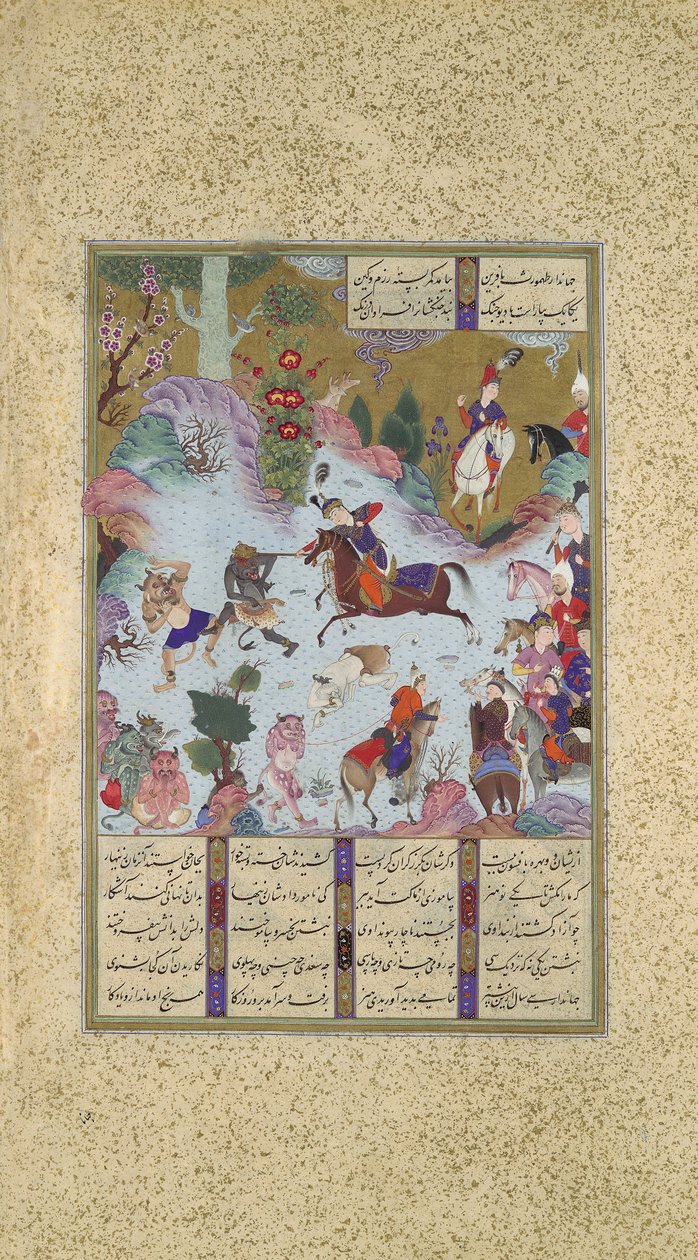 جهاندار طهمورث بافرین بیامد کمر بسته رزم و کین
یکایک بیاراست با دیو جنگ نبد جنگشانرا فراوان درنگ
ازیشان دو بهره بافسون ببست دگرشان بگرز گران کرد پست کشیدندشان خسته و بسته خوار بجان خواستند آنزمان زنهار
که ما را مکش تا یکی نو هنر بیاموزی از ماکت آید ببر کی نامور دادشان زینهار بدان تا نهانی کنند آشکار
چو آزاد گشتند از بند اوی بجستند ناچار پیوند اوی نبشتن بخسرو بیاموختند دلش را بدانش
نبشتن یکی نه که نزدیک سی چه رومی چه تازی و چه پارسی چه سغدی چه چینی و چه پهلوی نگاریدن آن کجا بشنوی
جهاندار سی سال ازین بیشتر پدید آوریدی هنر برفت و سر آمد برو روزگار همه رنج او ماند ازو یادگار